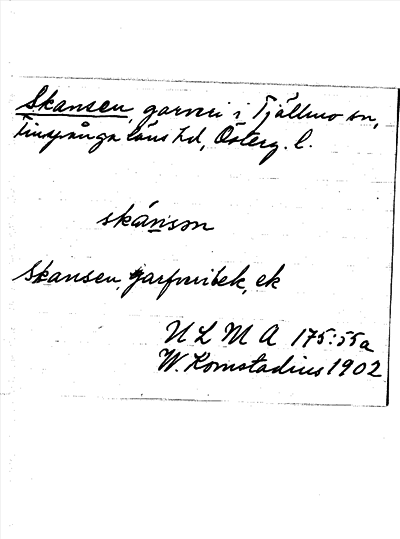 Skansen, garveri i Tjällmo sn,
Finspånga läns hd, Österg. l.
skánsən
Skansen, garfveribek, ek
U L M A 175:55a
W. Komstadius 1902